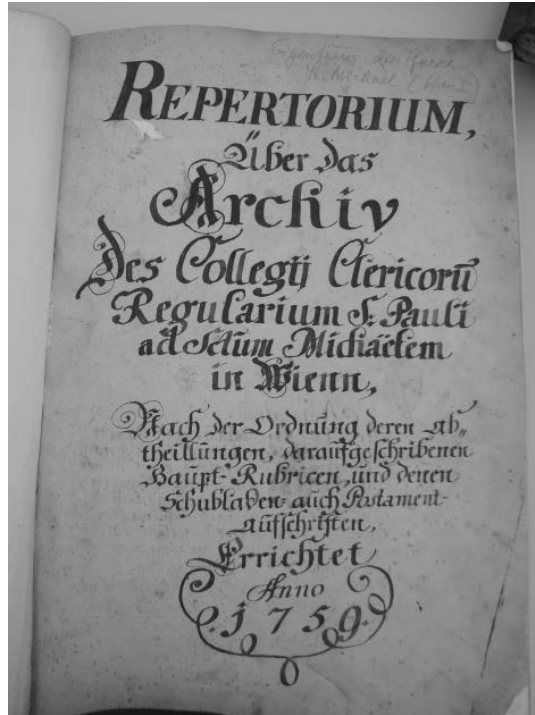 Eigentum der Pfarre
St. Michael (Wien I)
REPERTORIUM,
Über das
Archiv
Des Collegij Clericorū
Regularium S. Pauli
ad Sctum Michäelem
in Wienn,
Nach der Ordnung deren ab„
theillungen, darauf geschribenen
Haupt-Rubricen, und denen
Schubladen- auch Postament-
aufschriften,
Errichtet
Anno
1759.